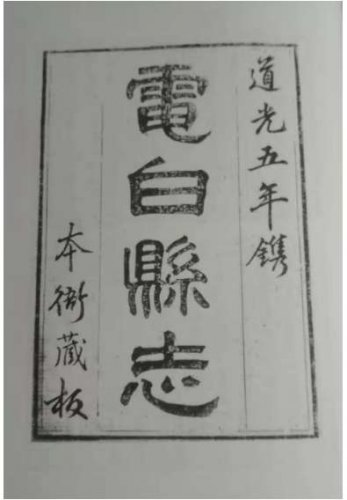 道光五年鐫
電白縣志
本衙藏板